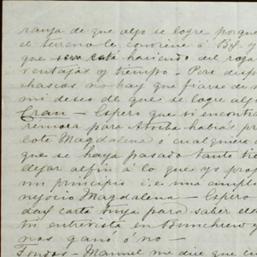 ranza de que algo se logre porque
el terreno le conviene á By. y
que está haciendo del roga
ventajas y tiempo. Pero desp
chascos no hay que fiarse de n
mi deseo de que se logre alg
Eran — Espero que si encontra
remota para Atocha habías pr
lote Magdalena ó cualquiera
que se haya pasado tanto tie
dejar al fin á lo que yo prop
mi principio i.e. una simple
negocio Magdalena — Espero
dar carta tuya para saber el
tu entrevista en Bunchero y
nos ganó ó no —
Fondos — Manuel me dice que cu